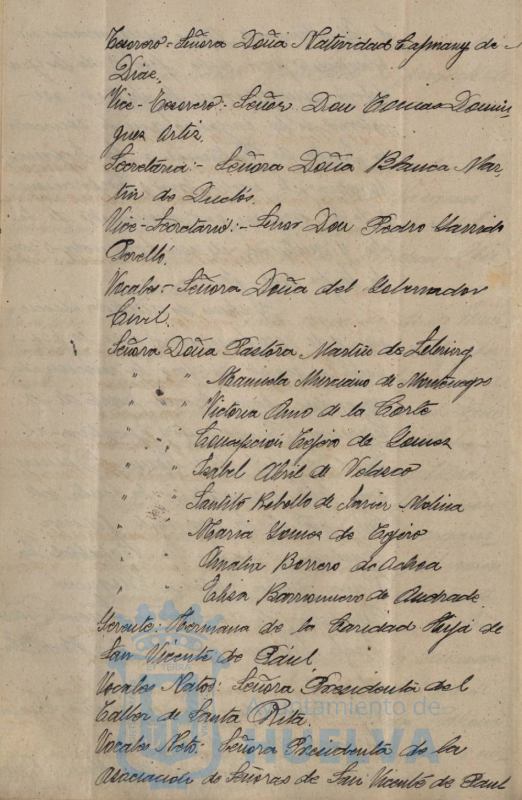 Tesorero- Señora Doña Natividad Capmany de
Diaz,
Vice-Tesorero: Señor Don Tomas Domin-
guez Ortiz.
Secretaria:- Señora Doña Blanca Mar-
tin de Duclós.
Vice-Secretario:- Señor Don Pedro Garrido
Perelló.
Vocales:- Señora Doña del Gobernador
Civil.
Señora Doña Pastora Martin de
" " Manuela Murciano de Montenegro
" " Victoria Amo de la Corte
" " Concepcion Tejero de Gomez
" " Isabel Abril de Velasco
" " Rebollo de Javier Molina
" " Maria Gomez de Tejero
" " Amalia Borrero de Ochoa
" " Elisa Barrionuevo de Andrade
Gerente: Hermana de la Caridad Hija de
San Vicente de Paúl.
Vocales Natos: Señora Presidenta del
Taller de Santa Rita.
Ayuntamiento de
HUELVA
Vocales Nato Señora Presidenta de la
Asociacion de Señoras de San Vicente de Paul